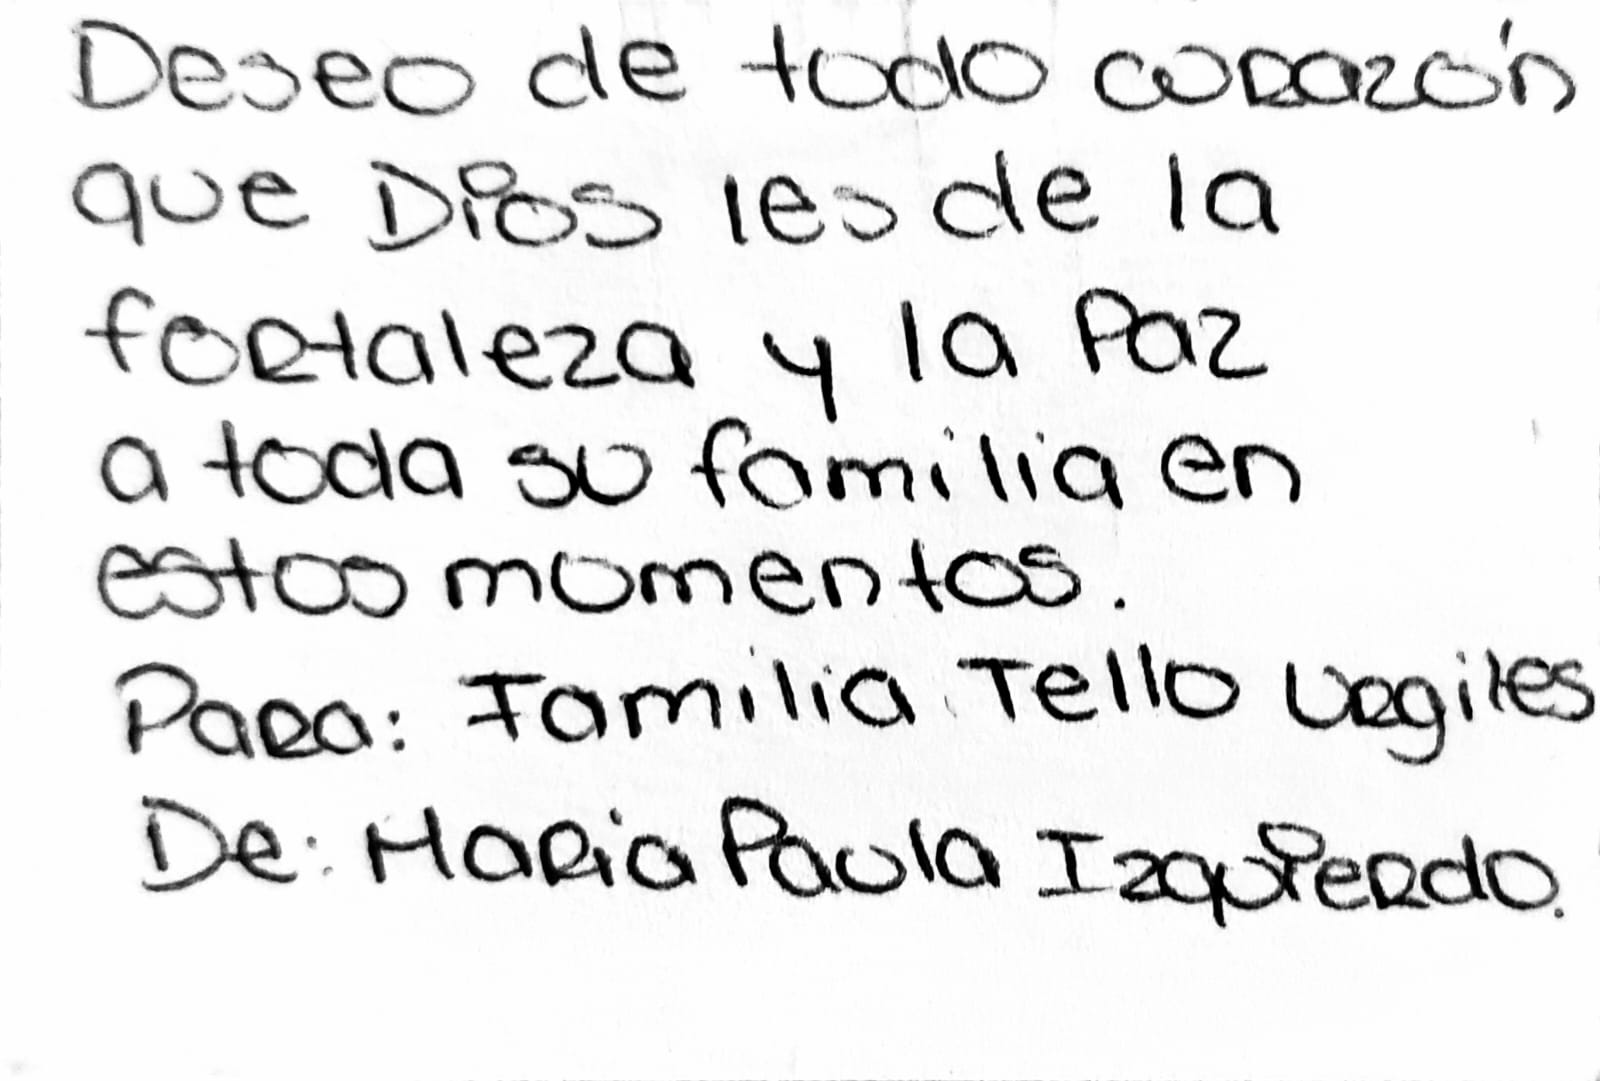 Deseo de todo corazón
que Dios les de la
fortaleza y la Paz
a toda su familia en
estos momentos.
Para: Familia Tello Urgiles
De: Maria Paula Izquierdo.